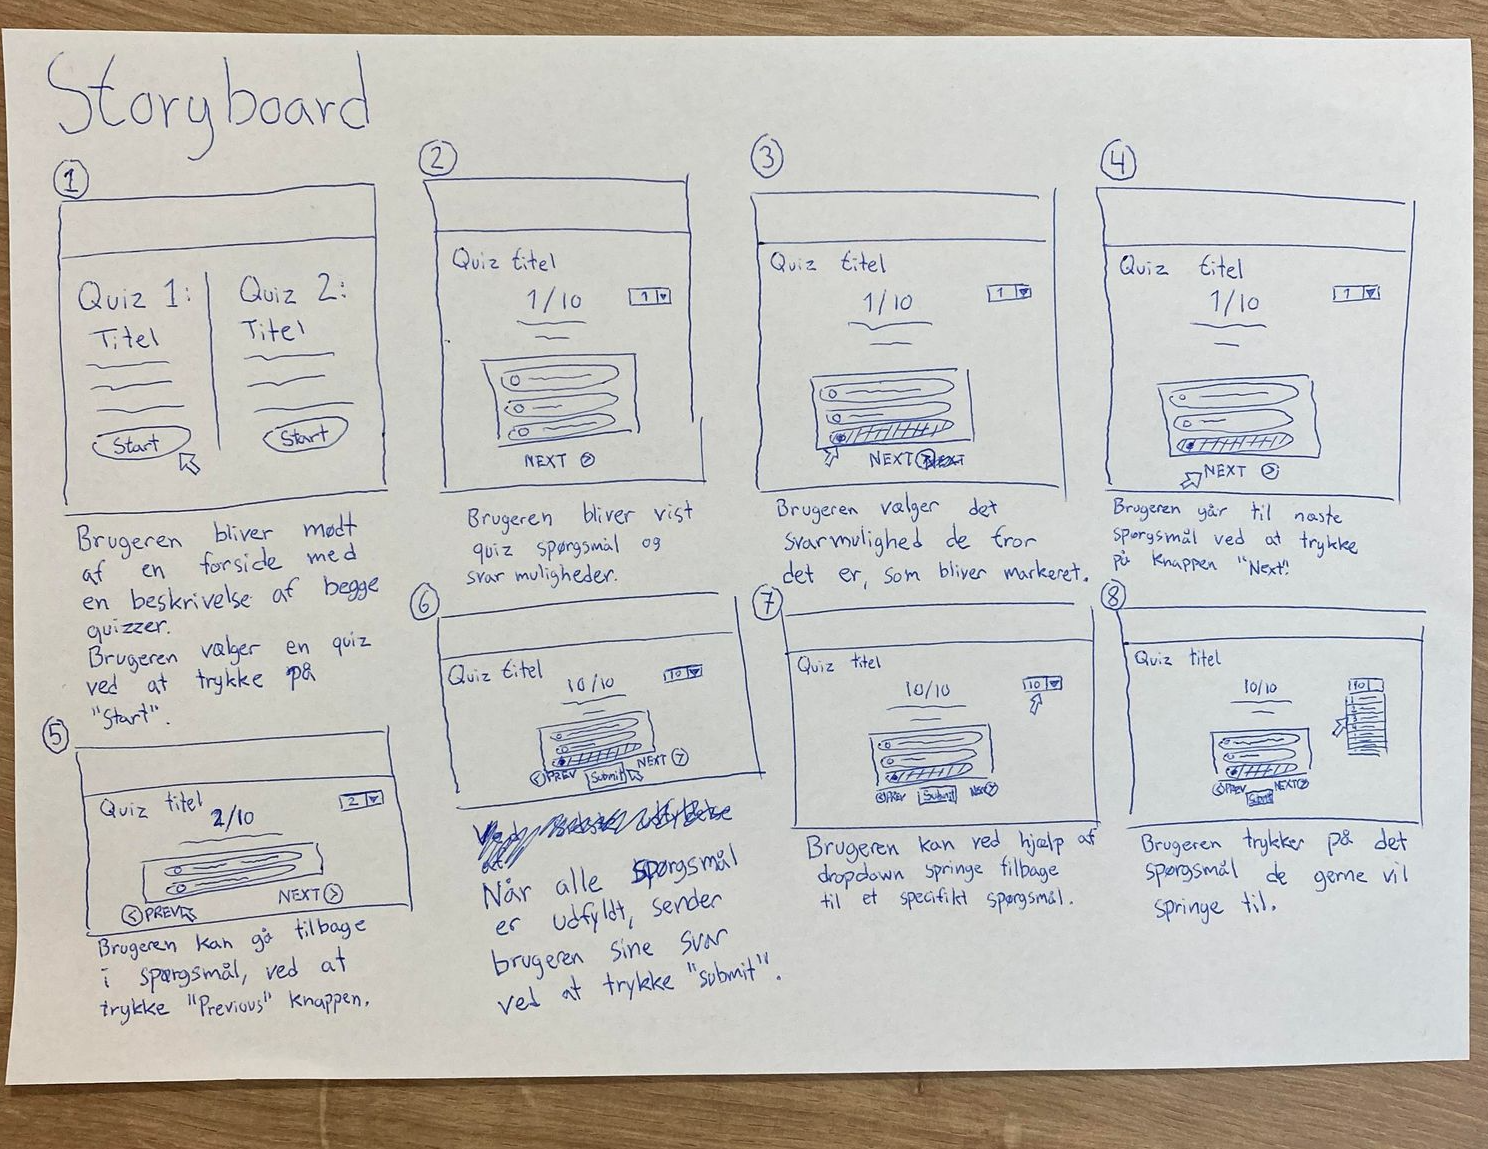 Storyboard
1
Quiz 1:
Titel
Start
Quiz 2:
Titel
Start
Brugeren bliver mødt
af en forside med
en beskrivelse af begge
quizzer.
Brugeren vælger en quiz
ved at trykke på
"Start".
2
Quiz titel
1/10
1
NEXT
Brugeren bliver vist
quiz spørgsmål og
svar muligheder.
3
Quiz titel
1/10
1
NEXT
Brugeren vælger det
svarmulighed de tror
det er, som bliver markeret.
4
Quiz titel
1/10
1
NEXT
Brugeren går til næste
spørgsmål ved at trykke
på knappen "Next".
5
Quiz titel
2/10
2
NEXT
PREV
Brugeren kan gå tilbage
i spørgsmål, ved at
trykke "Previous" knappen.
6
Quiz titel
10/10
10
PREV Submit NEXT
Når alle spørgsmål
er udfyldt, sender
brugeren sine svar
ved at trykke "submit".
7
Quiz titel
10/10
10
PREV Submit NEXT
Brugeren kan ved hjælp af
dropdown springe tilbage
til et specifikt spørgsmål.
8
Quiz titel
10/10
10
PREV NEXT
Submit
Brugeren trykker på det
spørgsmål de gerne vil
springe til.